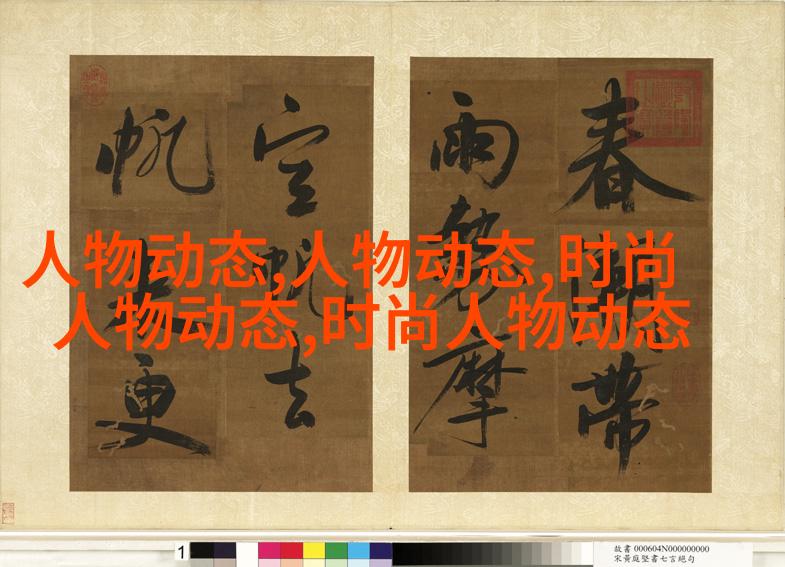 春
帶
雨
摩
空
去
帆
更
人物动态,人物动态,时尚
人物动态,时尚人物动态
1
故書 000604N000000000
宋黃庭堅書七言絕句